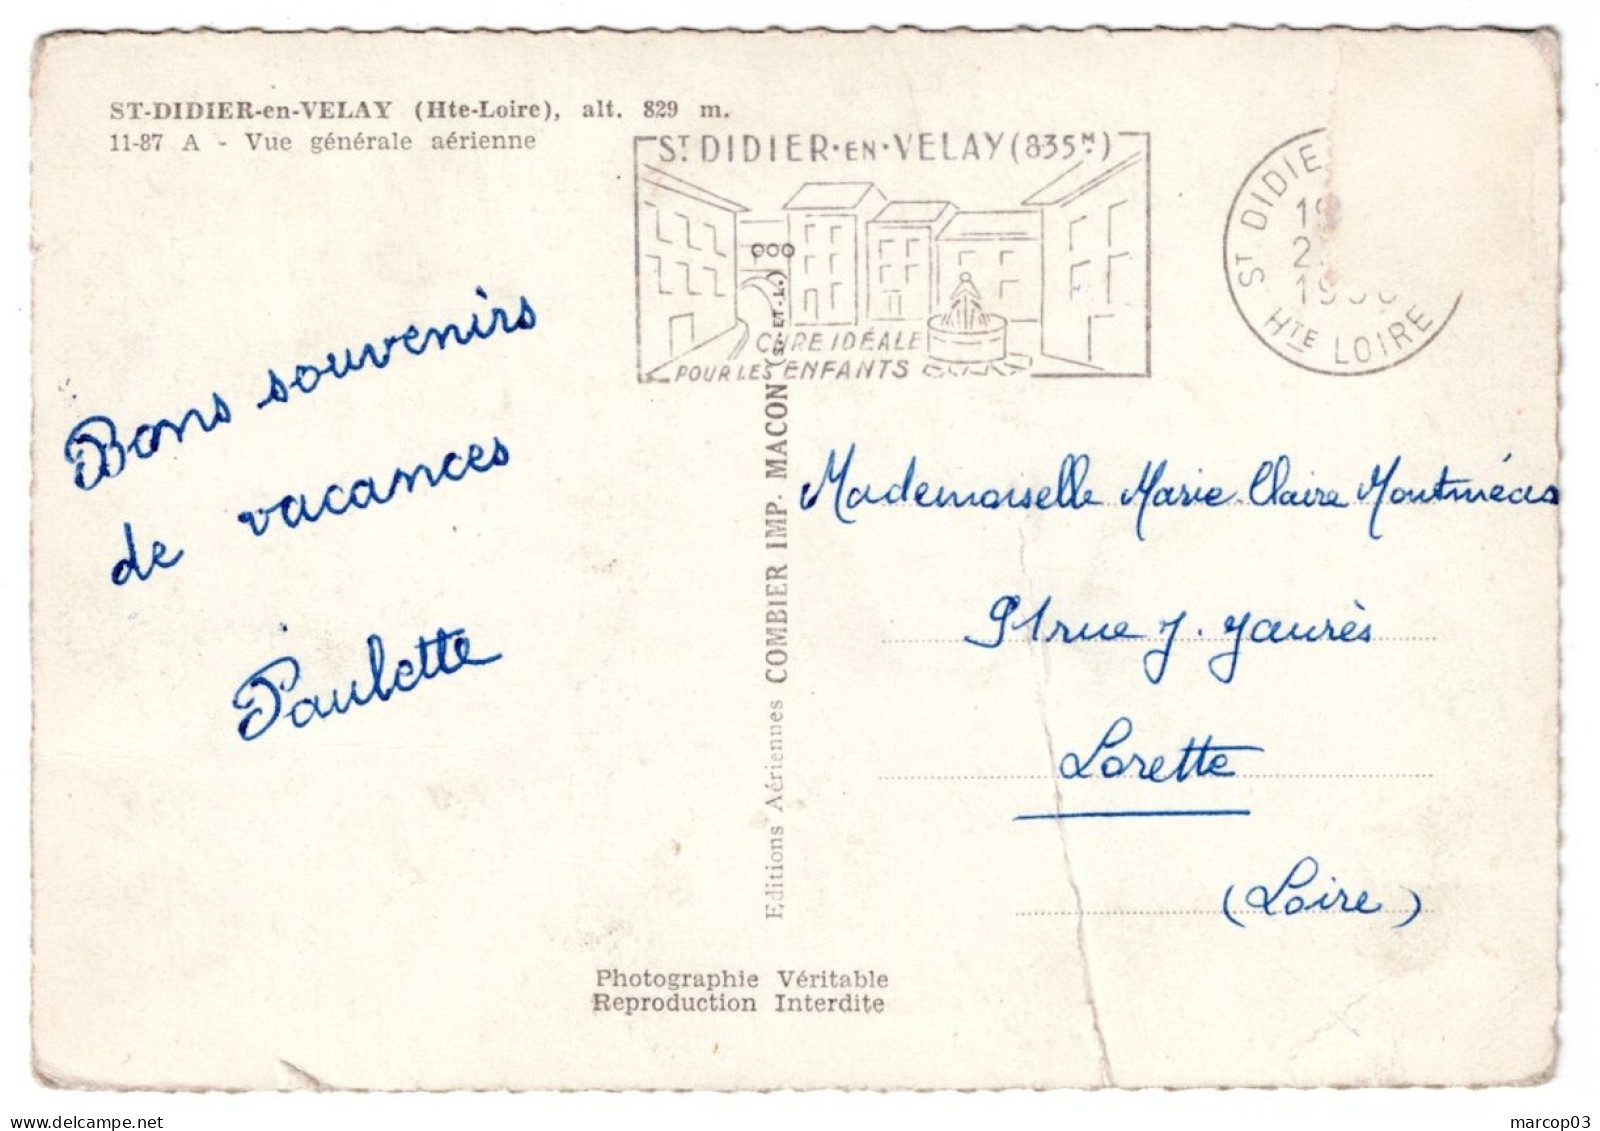 ST-DIDIER-en-VELAY (Hte-Loire), alt. 829 m.
11-87 A - Vue générale aérienne
ST DIDIER·EN·VELAY (835M)
CURE IDÉALE
POUR LES ENFANTS
ST DIDIE
HTE LOIRE
Bons souvenirs
de vacances
Paulette
Editions Aériennes COMBIER IMP. MACON (S.-ET-L.)
Mademoiselle Marie Claire
rue J. Jaurès
Lorette
(Loire)
Photographie Véritable
Reproduction Interdite
marcop03